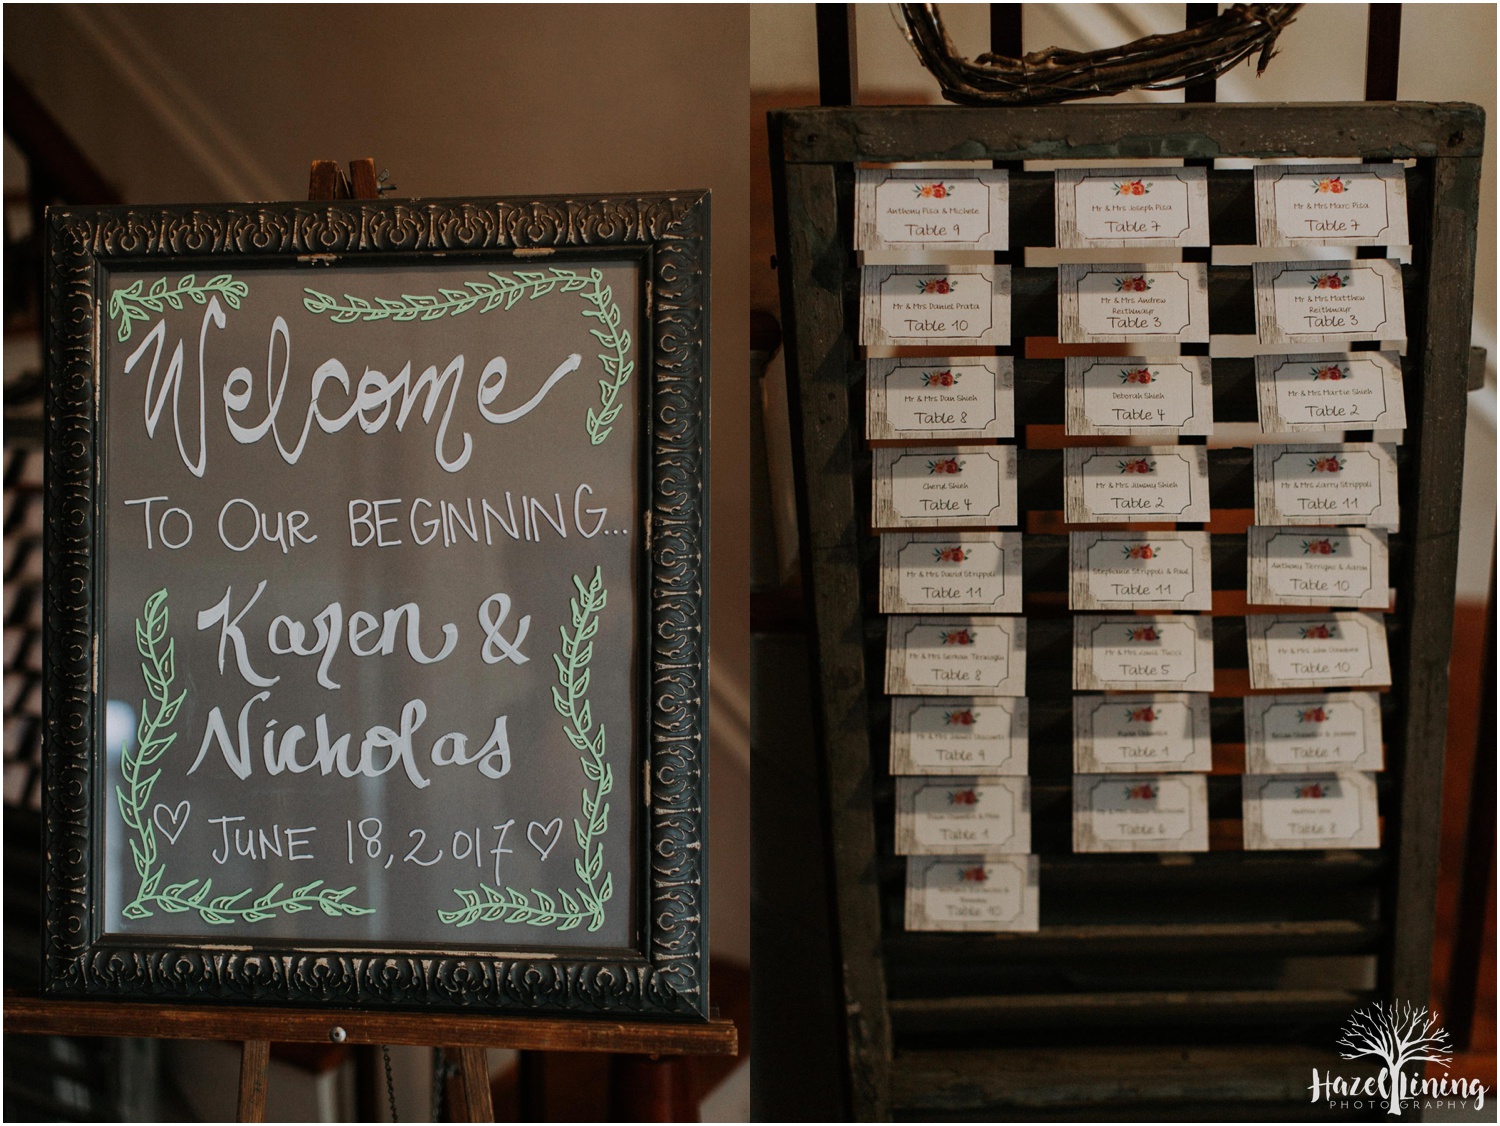 Welcome
TO OUR BEGINNING...
Karen &
Nicholas
JUNE 18, 2017
Anthony Pisa & Michele
Table 9
Mr & Mrs Joseph Pisa
Table 7
Mr & Mrs Marc Pisa
Table 7
Mr & Mrs Daniel Prata
Table 10
Mr & Mrs Andrew
Reithmayr
Table 3
Mr & Mrs Matthew
Reithmayr
Table 3
Mr & Mrs Dan Shieh
Table 8
Deborah Shieh
Table 4
Mr & Mrs Martin Shieh
Table 2
Cheryl Shieh
Table 4
Mr & Mrs Jimmy Shieh
Table 2
Mr & Mrs Larry Strippoli
Table 11
Mr & Mrs David Strippoli
Table 11
Stephanie Strippoli & Paul
Table 11
Anthony Terrigno & Aaron
Table 10
Mr & Mrs
Table 8
Mr & Mrs Louis Tucci
Table 5
Mr & Mrs John
Table 10
Mr & Mrs James
Table 9
Table 1
Table 1
Table 1
Mr & Mrs
Table 6
Table 8
Table 10
Hazel Lining
PHOTOGRAPHY